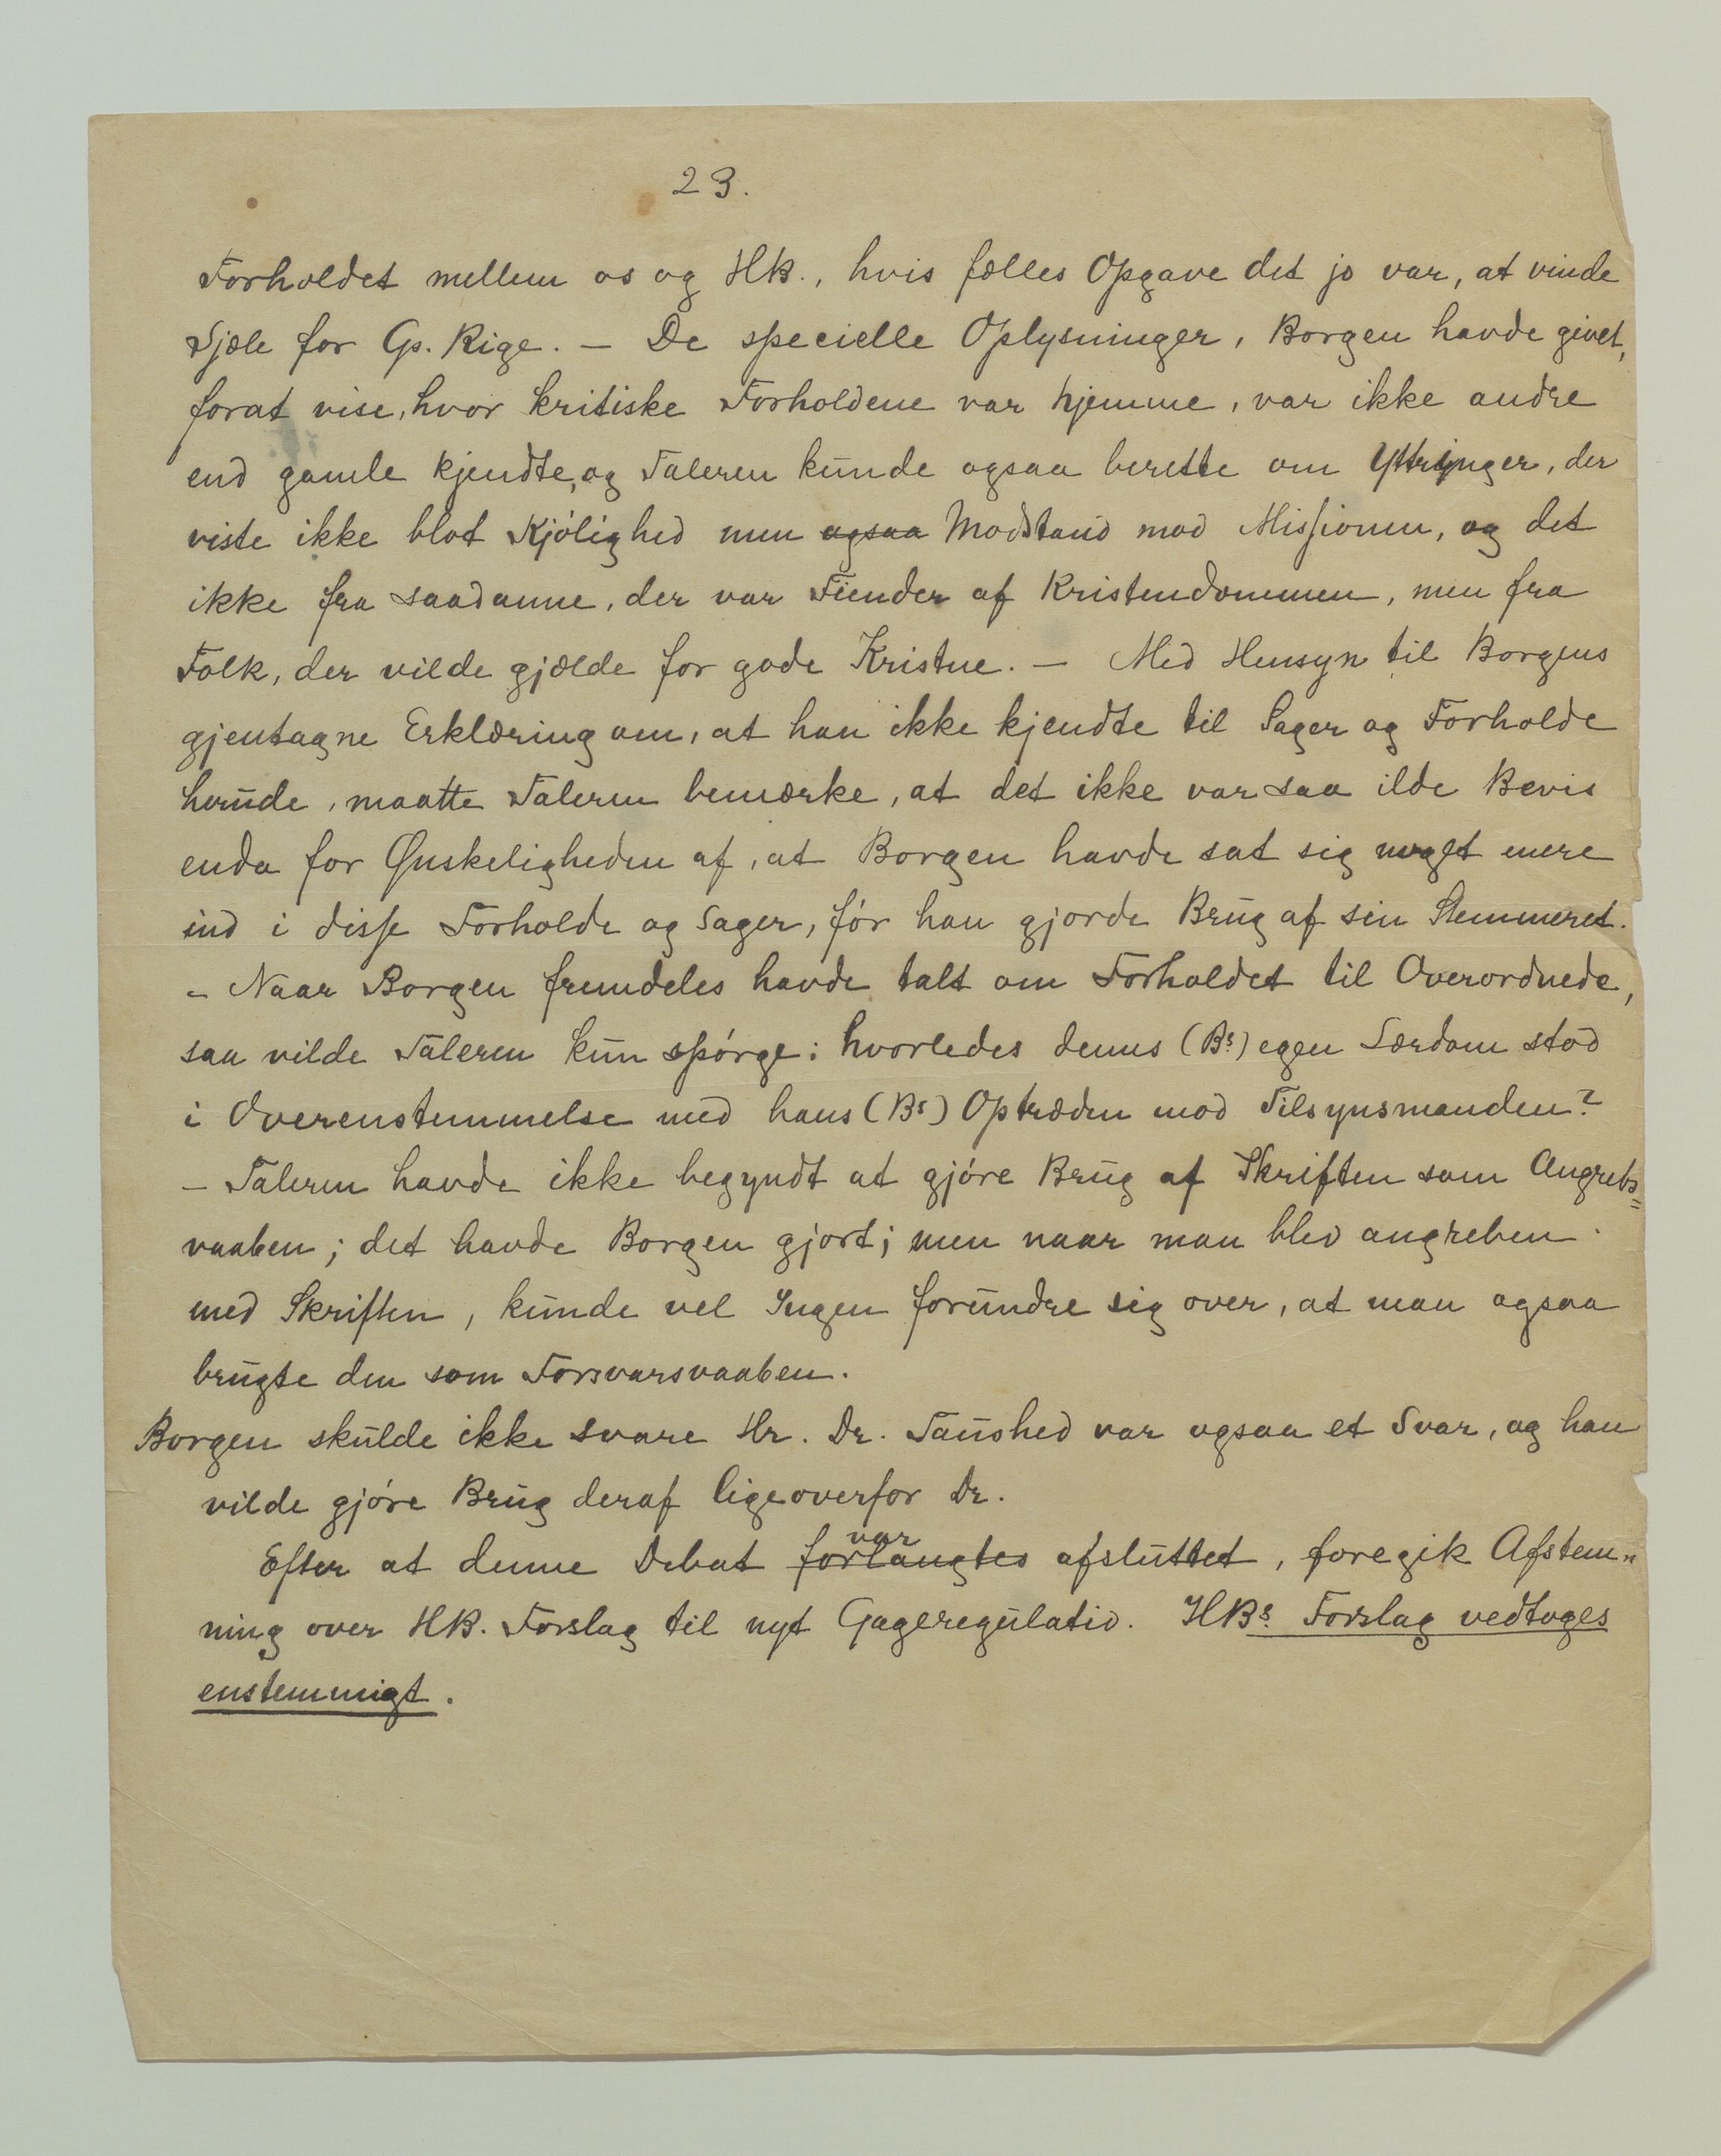 23.
Forholdet mellem os og HB., hvis fælles Opgave det jo var, at vinde
Sjæle for Gs. Rige. — De specielle Oplysninger, Borgen havde givet,
forat vise, hvor kritiske Forholdene var hjemme, var ikke andre
end gamle kjendte, og Taleren kunde ogsaa berette om Yttringer, der
viste ikke blot Kjølighed men ogsaa Modstand mod Missionen, og det
ikke fra saadanne, der var Fiender af Kristendommen, men fra
Folk, der vilde gjælde for gode Kristne. — Med Hensyn til Borgens
gjentagne Erklæring om, at han ikke kjendte til Sager og Forholde
herude, maatte Taleren bemærke, at det ikke var saa ilde Bevis
enda for Ønskeligheden af, at Borgen havde sat sig noget mere
ind i disse Forholde og Sager, før han gjorde Brug af sin Stemmeret.
- Naar Borgen fremdeles havde talt om Forholdet til Overordnede,
saa vilde Taleren kun spørge: hvorledes dennes (Bs) egen Lærdom stod
i Overenstemmelse med hans (Bs) Optræden mod Tilsynsmanden?
— Taleren havde ikke begyndt at gjøre Brug af Skriften som Angrebs=
vaaben; det havde Borgen gjort; men naar man blev angreben
med Skriften, kunde vel Ingen forundre sig over, at man ogsaa
brugte den som Forsvarsvaaben.
Borgen skulde ikke svare Hr. Dr. Taushed var ogsaa et Svar, og han
vilde gjøre Brug deraf ligeoverfor Dr.
Efter at denne Debat forlangtes var afsluttet, foregik Afstem„
ning over HB. Forslag til nyt Gageregulativ. HBs. Forslag vedtoges
enstemmigt.